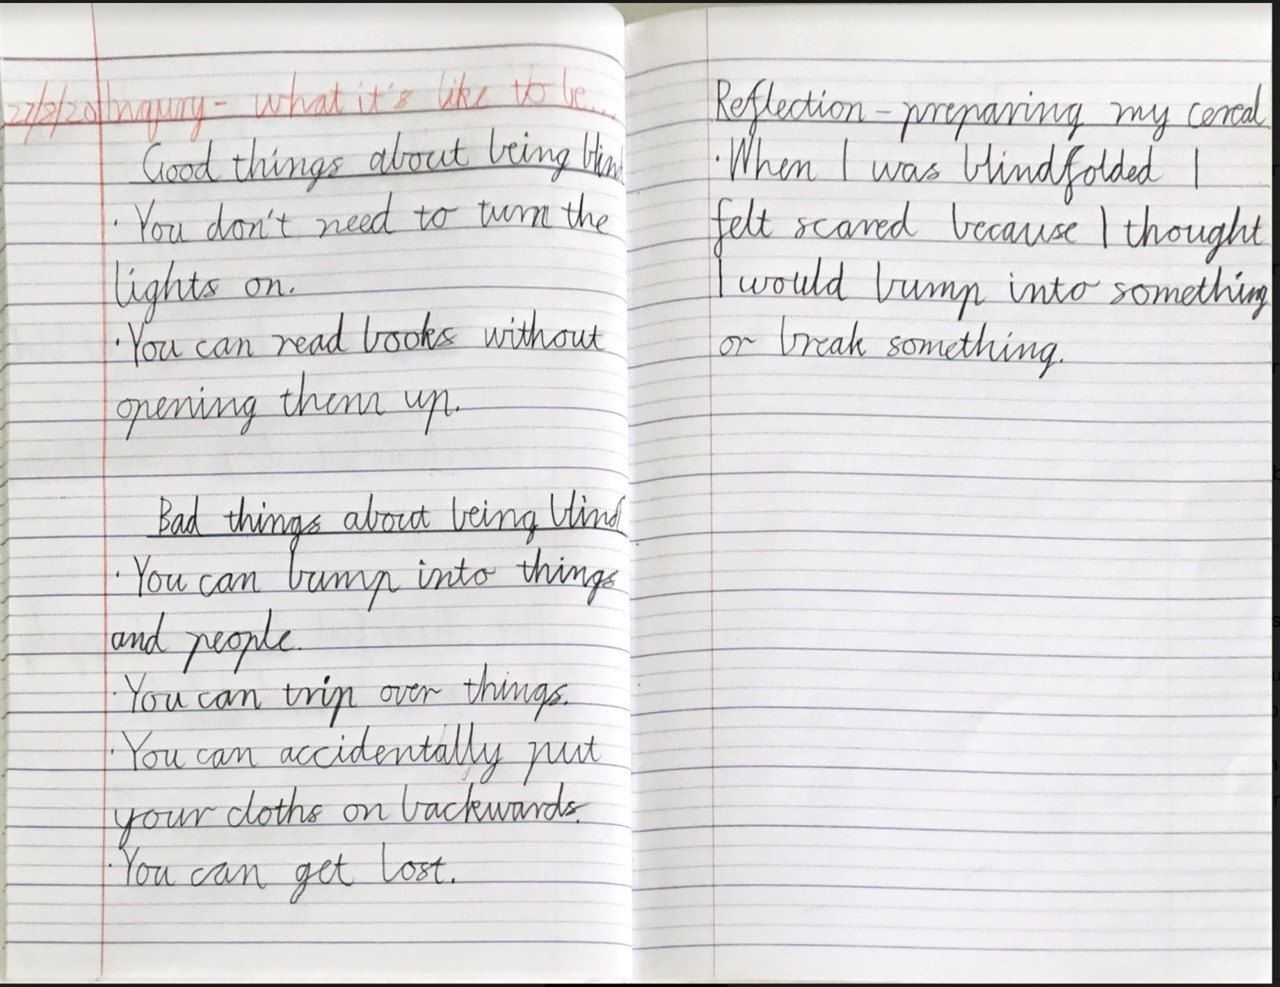 27/8/20 Inquiry - what it's like to be...
Good things about being blind
· You don't need to turn the
lights on.
· You can read books without
opening them up.
Bad things about being blind
· You can bump into things
and people.
· You can trip over things.
· You can accidentally put
your cloths on backwards.
· You can get lost.
Reflection - preparing my cereal
· When I was blindfolded I
felt scared because I thought
I would bump into something
or break something.